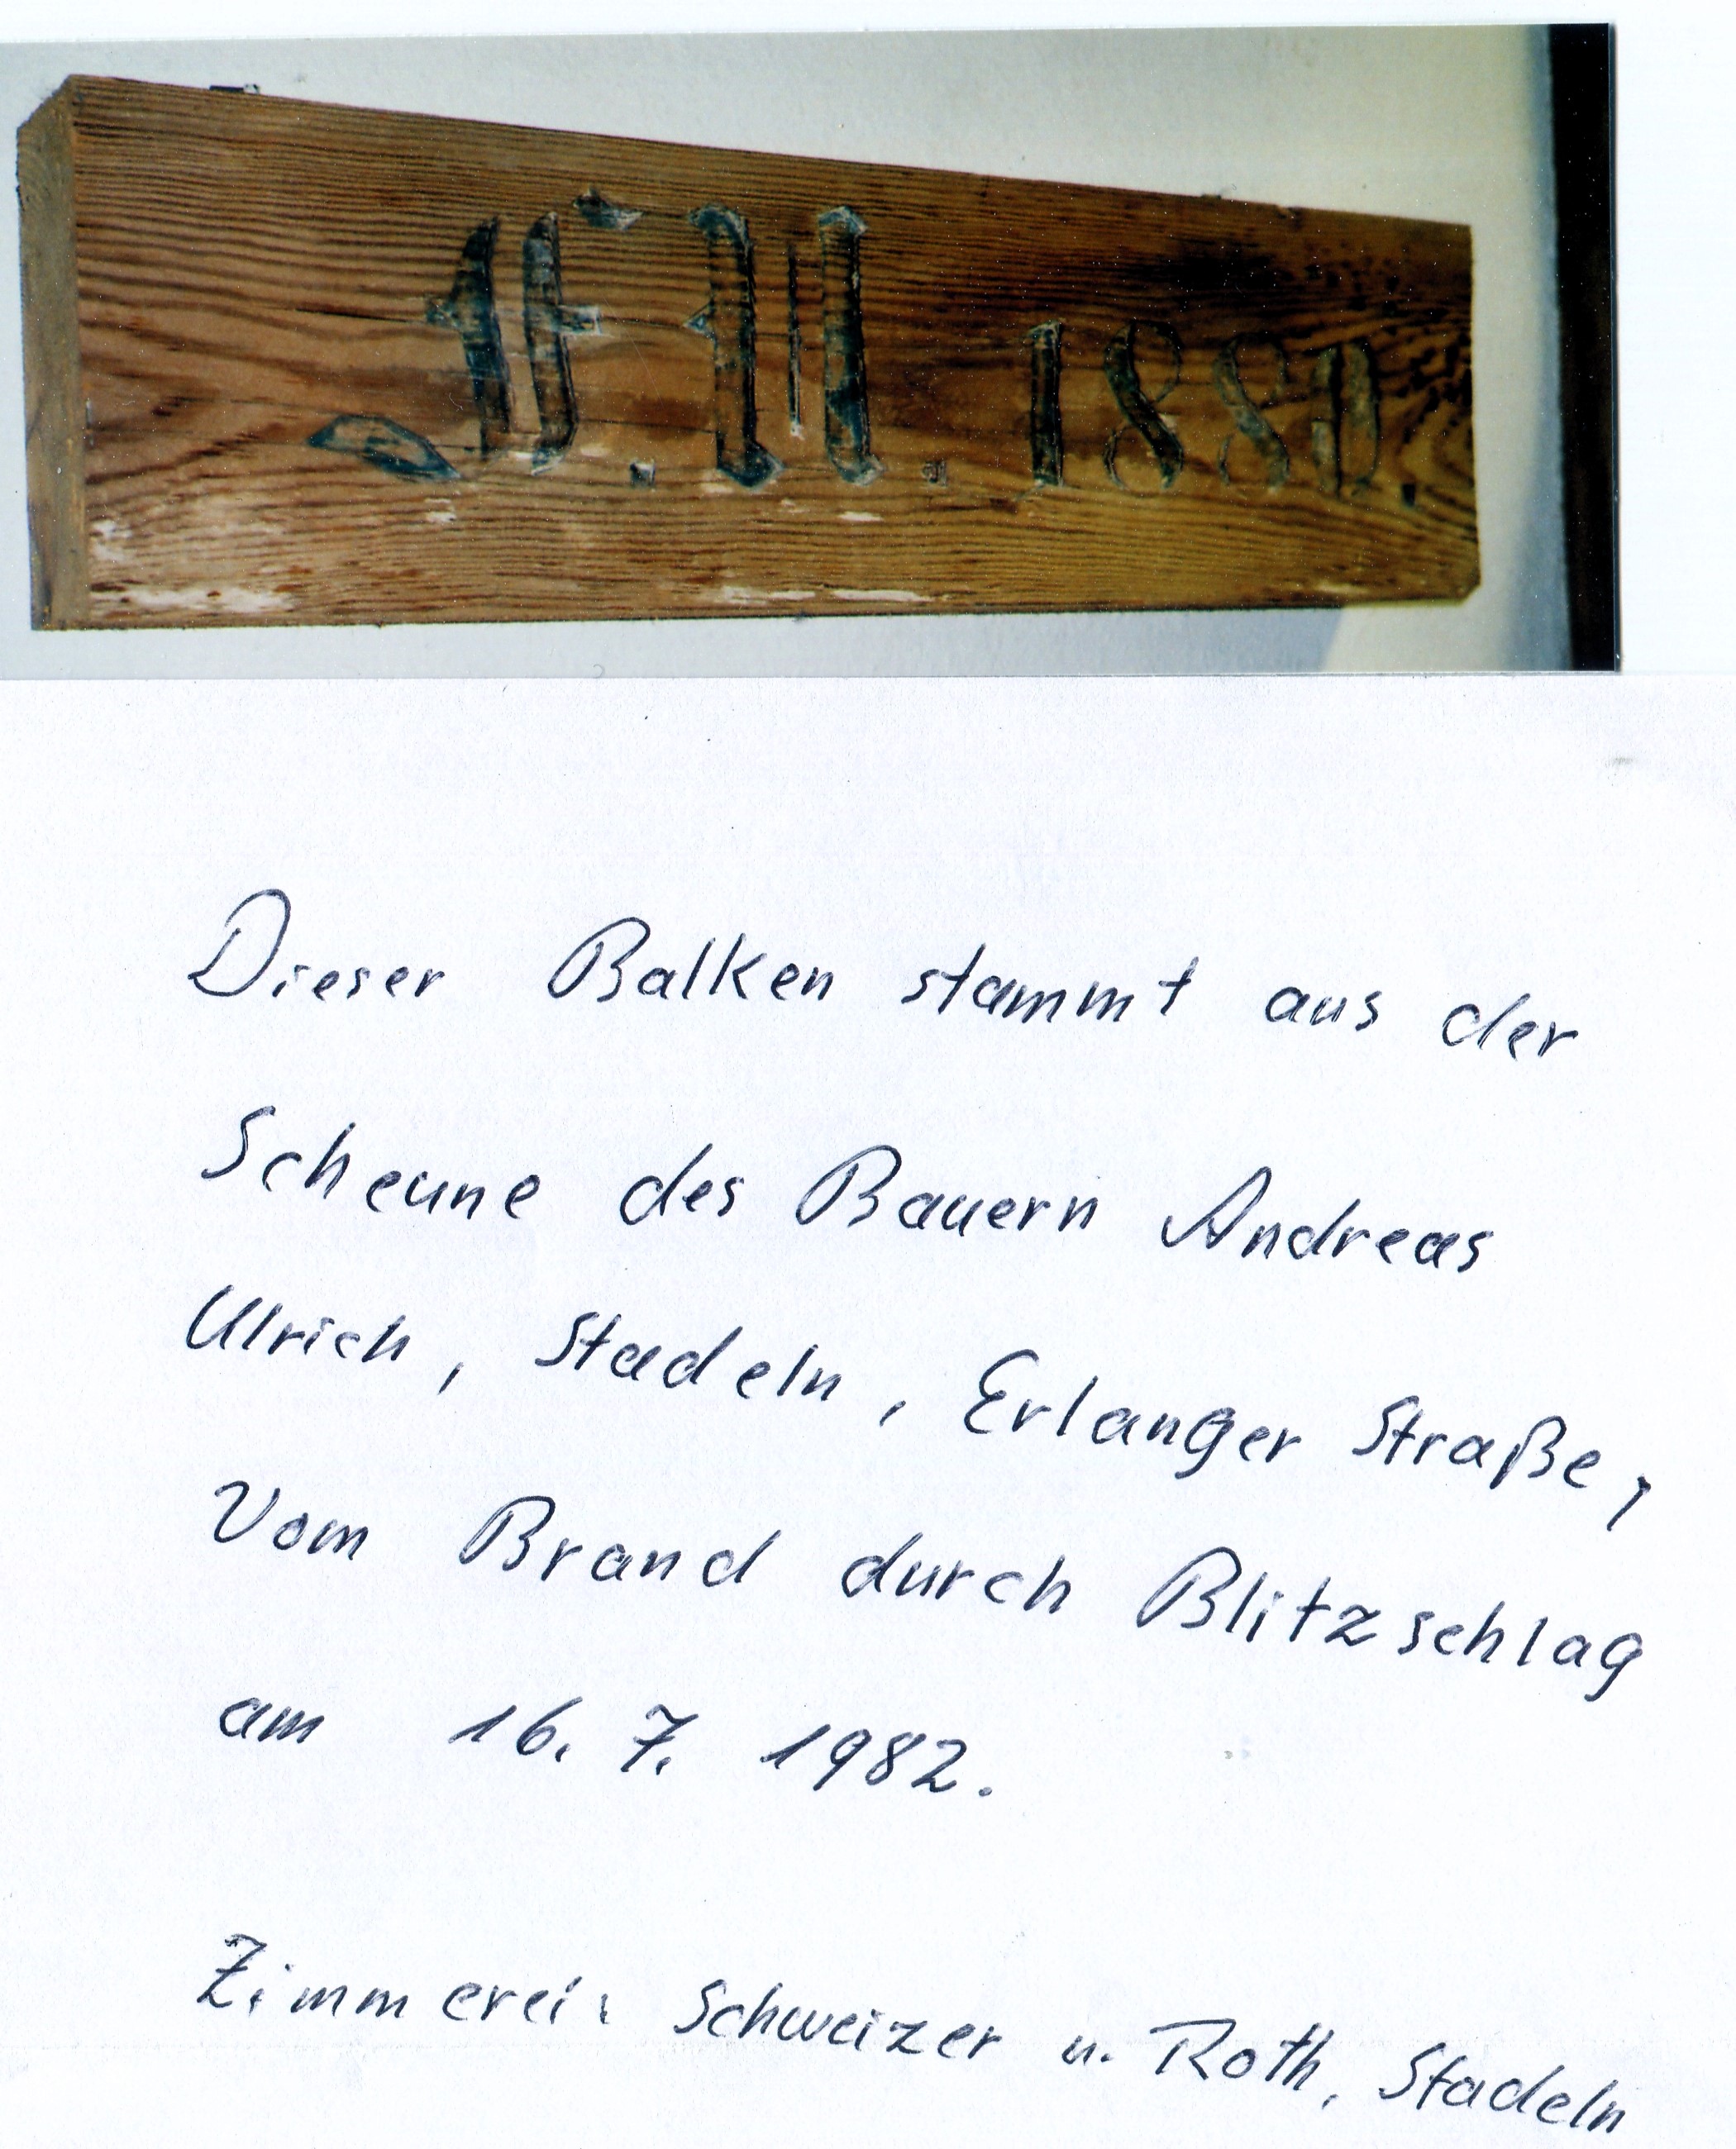 F. U. 1880.
Dieser Balken stammt aus der
Scheune des Bauern Andreas
Ulrich, Stadeln, Erlanger Straße,
Vom Brand durch Blitzschlag
am 16. 7. 1982.
Zimmerei: Schweizer u. Roth, Stadeln